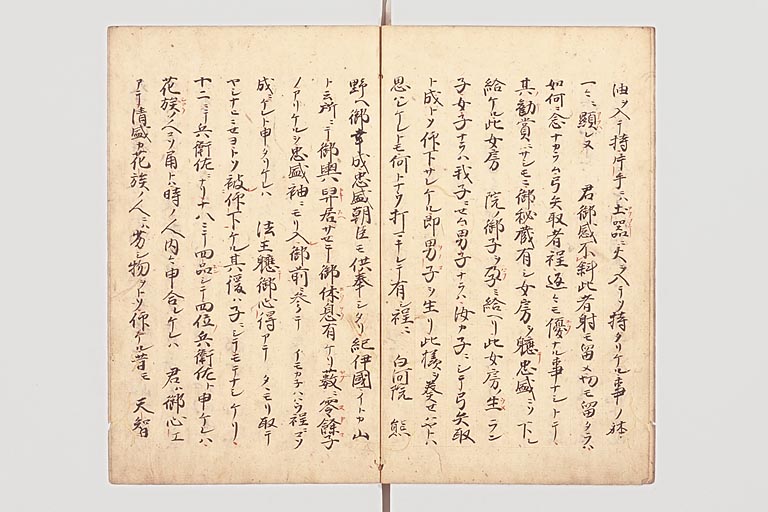 油ヲ入テ持片手ニハ土器ニ火ヲ入テソ持タリケル事ノ体
一々ニ顕レヌ 君御感不斜此者射モ留メ切モ留タラハ
如何ニ念ナカラム弓矢取者程返々モ優ナル事ナシトテ
其勧賞ニサシモニ御秘蔵有シ女房ヲ軈忠盛ニソ下シ
給ケル此女房 院ノ御子ヲ孕ミ給ヘリ此女房ノ生ラン
子女子ナラハ我子ニセム男子ナラハ汝カ子ニシテ弓矢取
ト成トソ仰下サレケル即男子ヲ生リ此様ヲ奏セハヤトハ
思ハレケレトモ何トナク打マキレテ有シ程ニ 白河院 熊
野ヘ御幸成忠盛朝臣モ供奉シタリ紀伊國イトカ山
ト云所ニテ御輿舁居サセテ御休息有ケリ藪ニ零餘子
ノアリケルヲ忠盛袖ニモリ入御前ニ参テ イモカ子ハハウ程ニソ
成ニケレト申タリケレハ 法王軈御心得アテ タヽモリ取テ
ヤシナヒニセヨトソ被仰下ケル其後ハ子ニシテモテナシケリ
十二ニテ兵衛佐ニナリ十八ニテ四品シテ四位兵衛佐ト申ケレハ
花族ノ人コソ角ハト時ノ人内々申合レケレハ 君ハ御心エ
アテ清盛カ花族ハ人ニ劣シ物ヲトソ仰ケル昔モ 天智